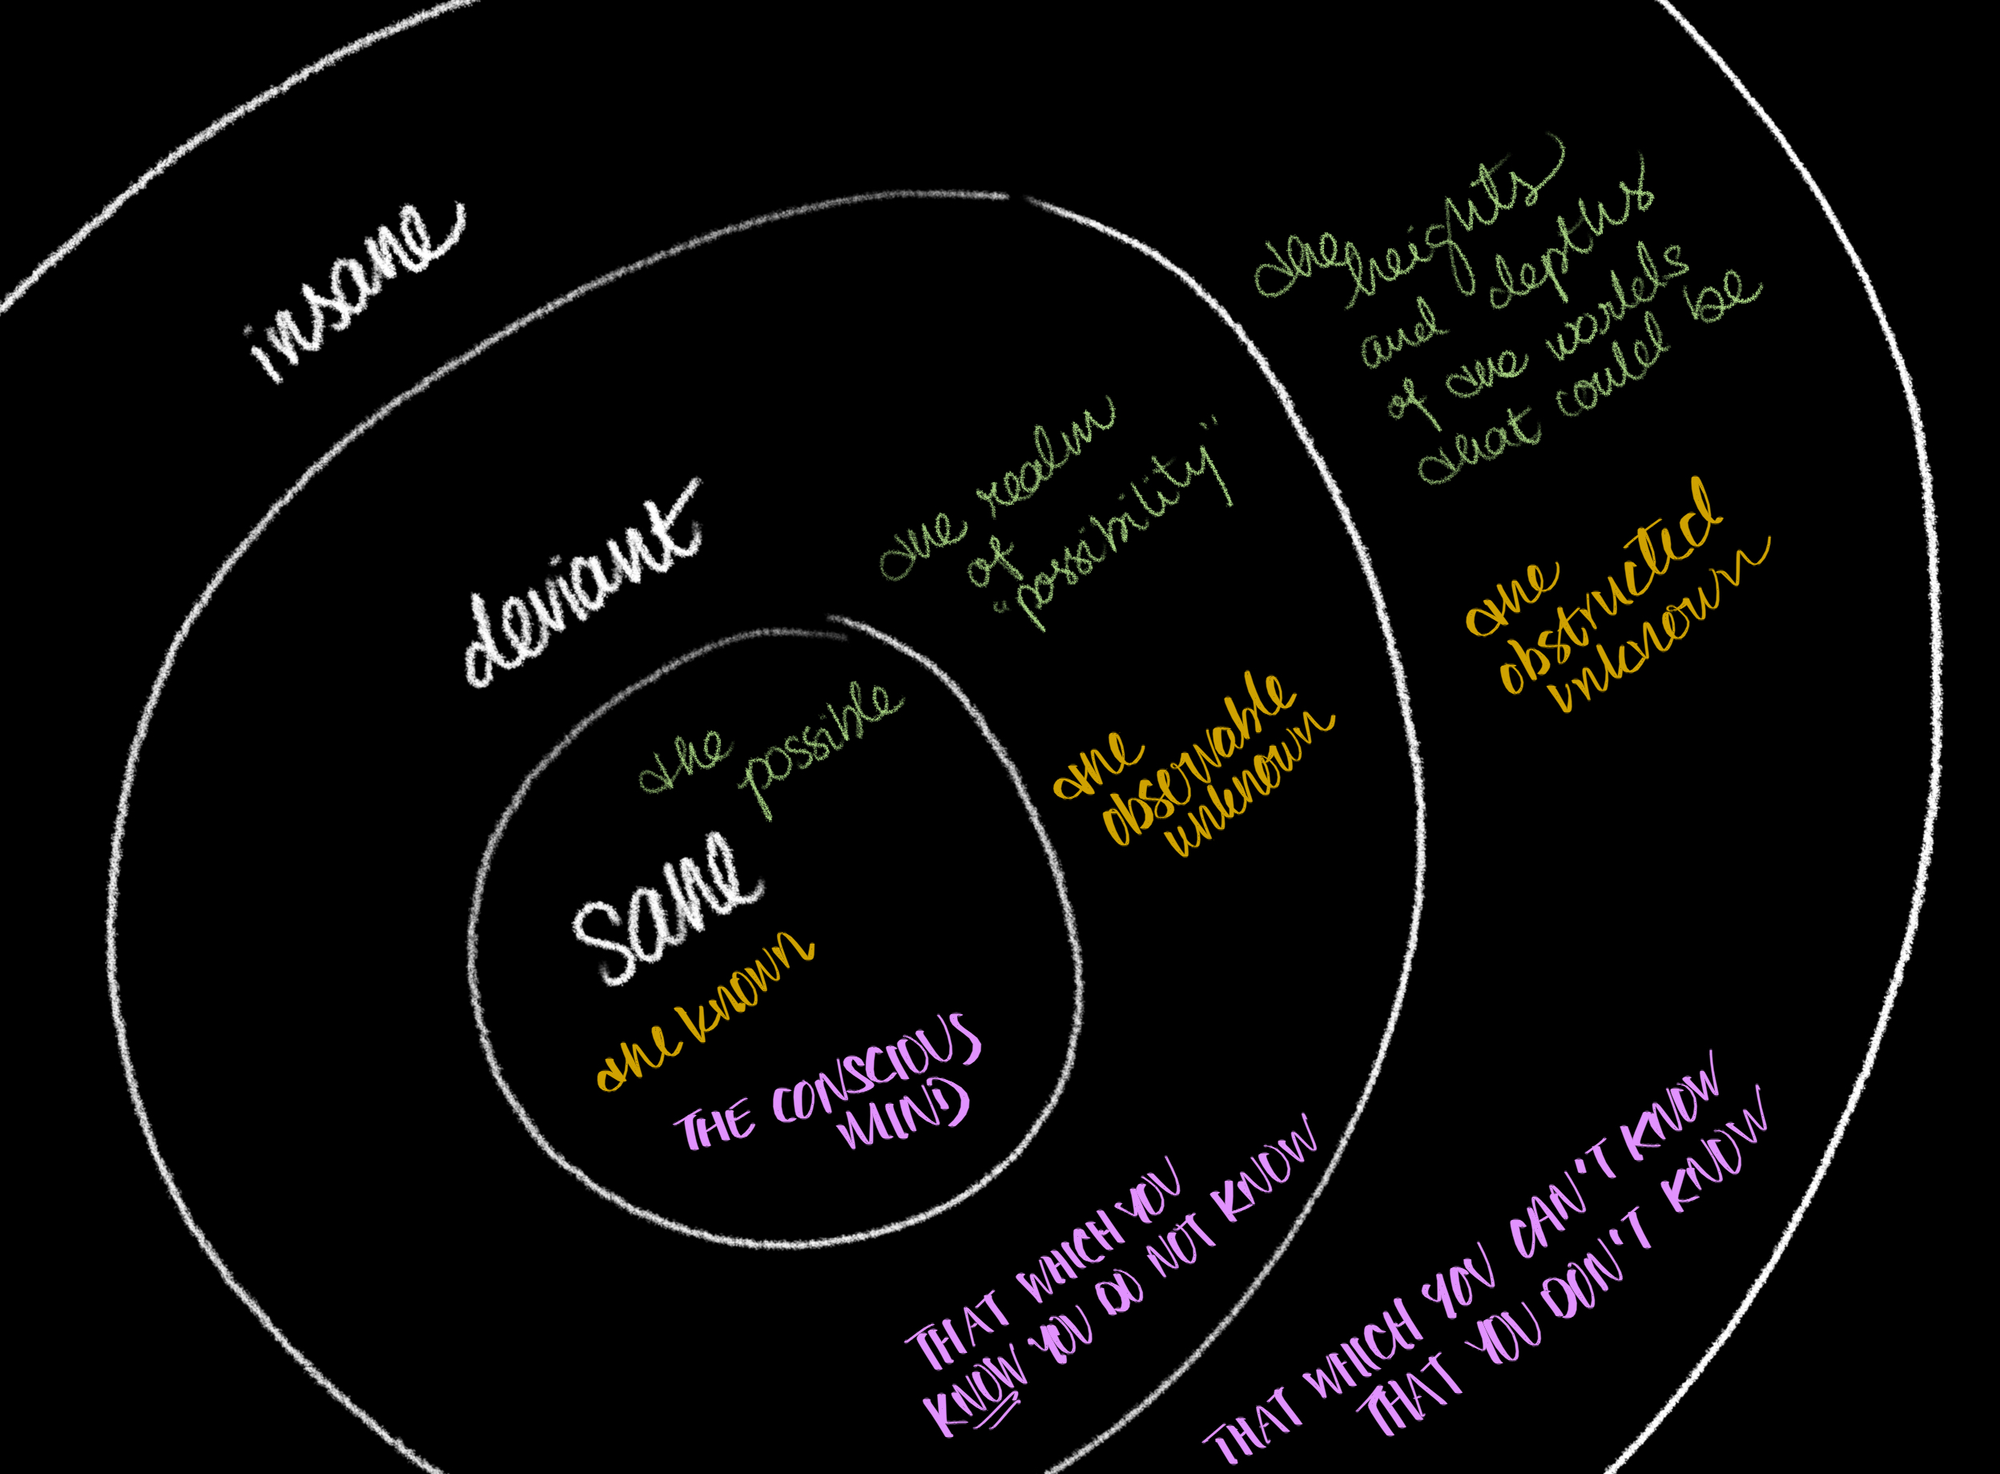 insane
the heights
and depths
of the worlds
that could be
deviant
the realm
of
"possibility"
the
obstructed
unknown
the
possible
the
observable
unknown
sane
the known
THE CONSCIOUS
MIND
THAT WHICH YOU
KNOW YOU DO NOT KNOW
THAT WHICH YOU CAN'T KNOW
THAT YOU DON'T KNOW